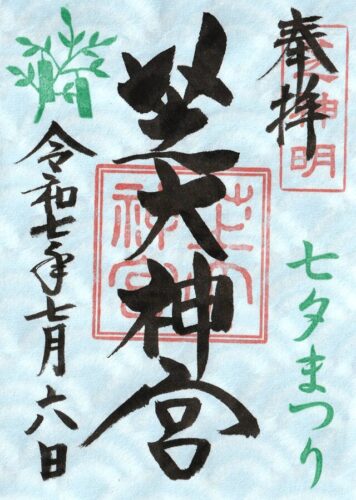 奉拝
芝神明
七夕まつり
芝大神宮
芝大神宮
令和七年七月六日